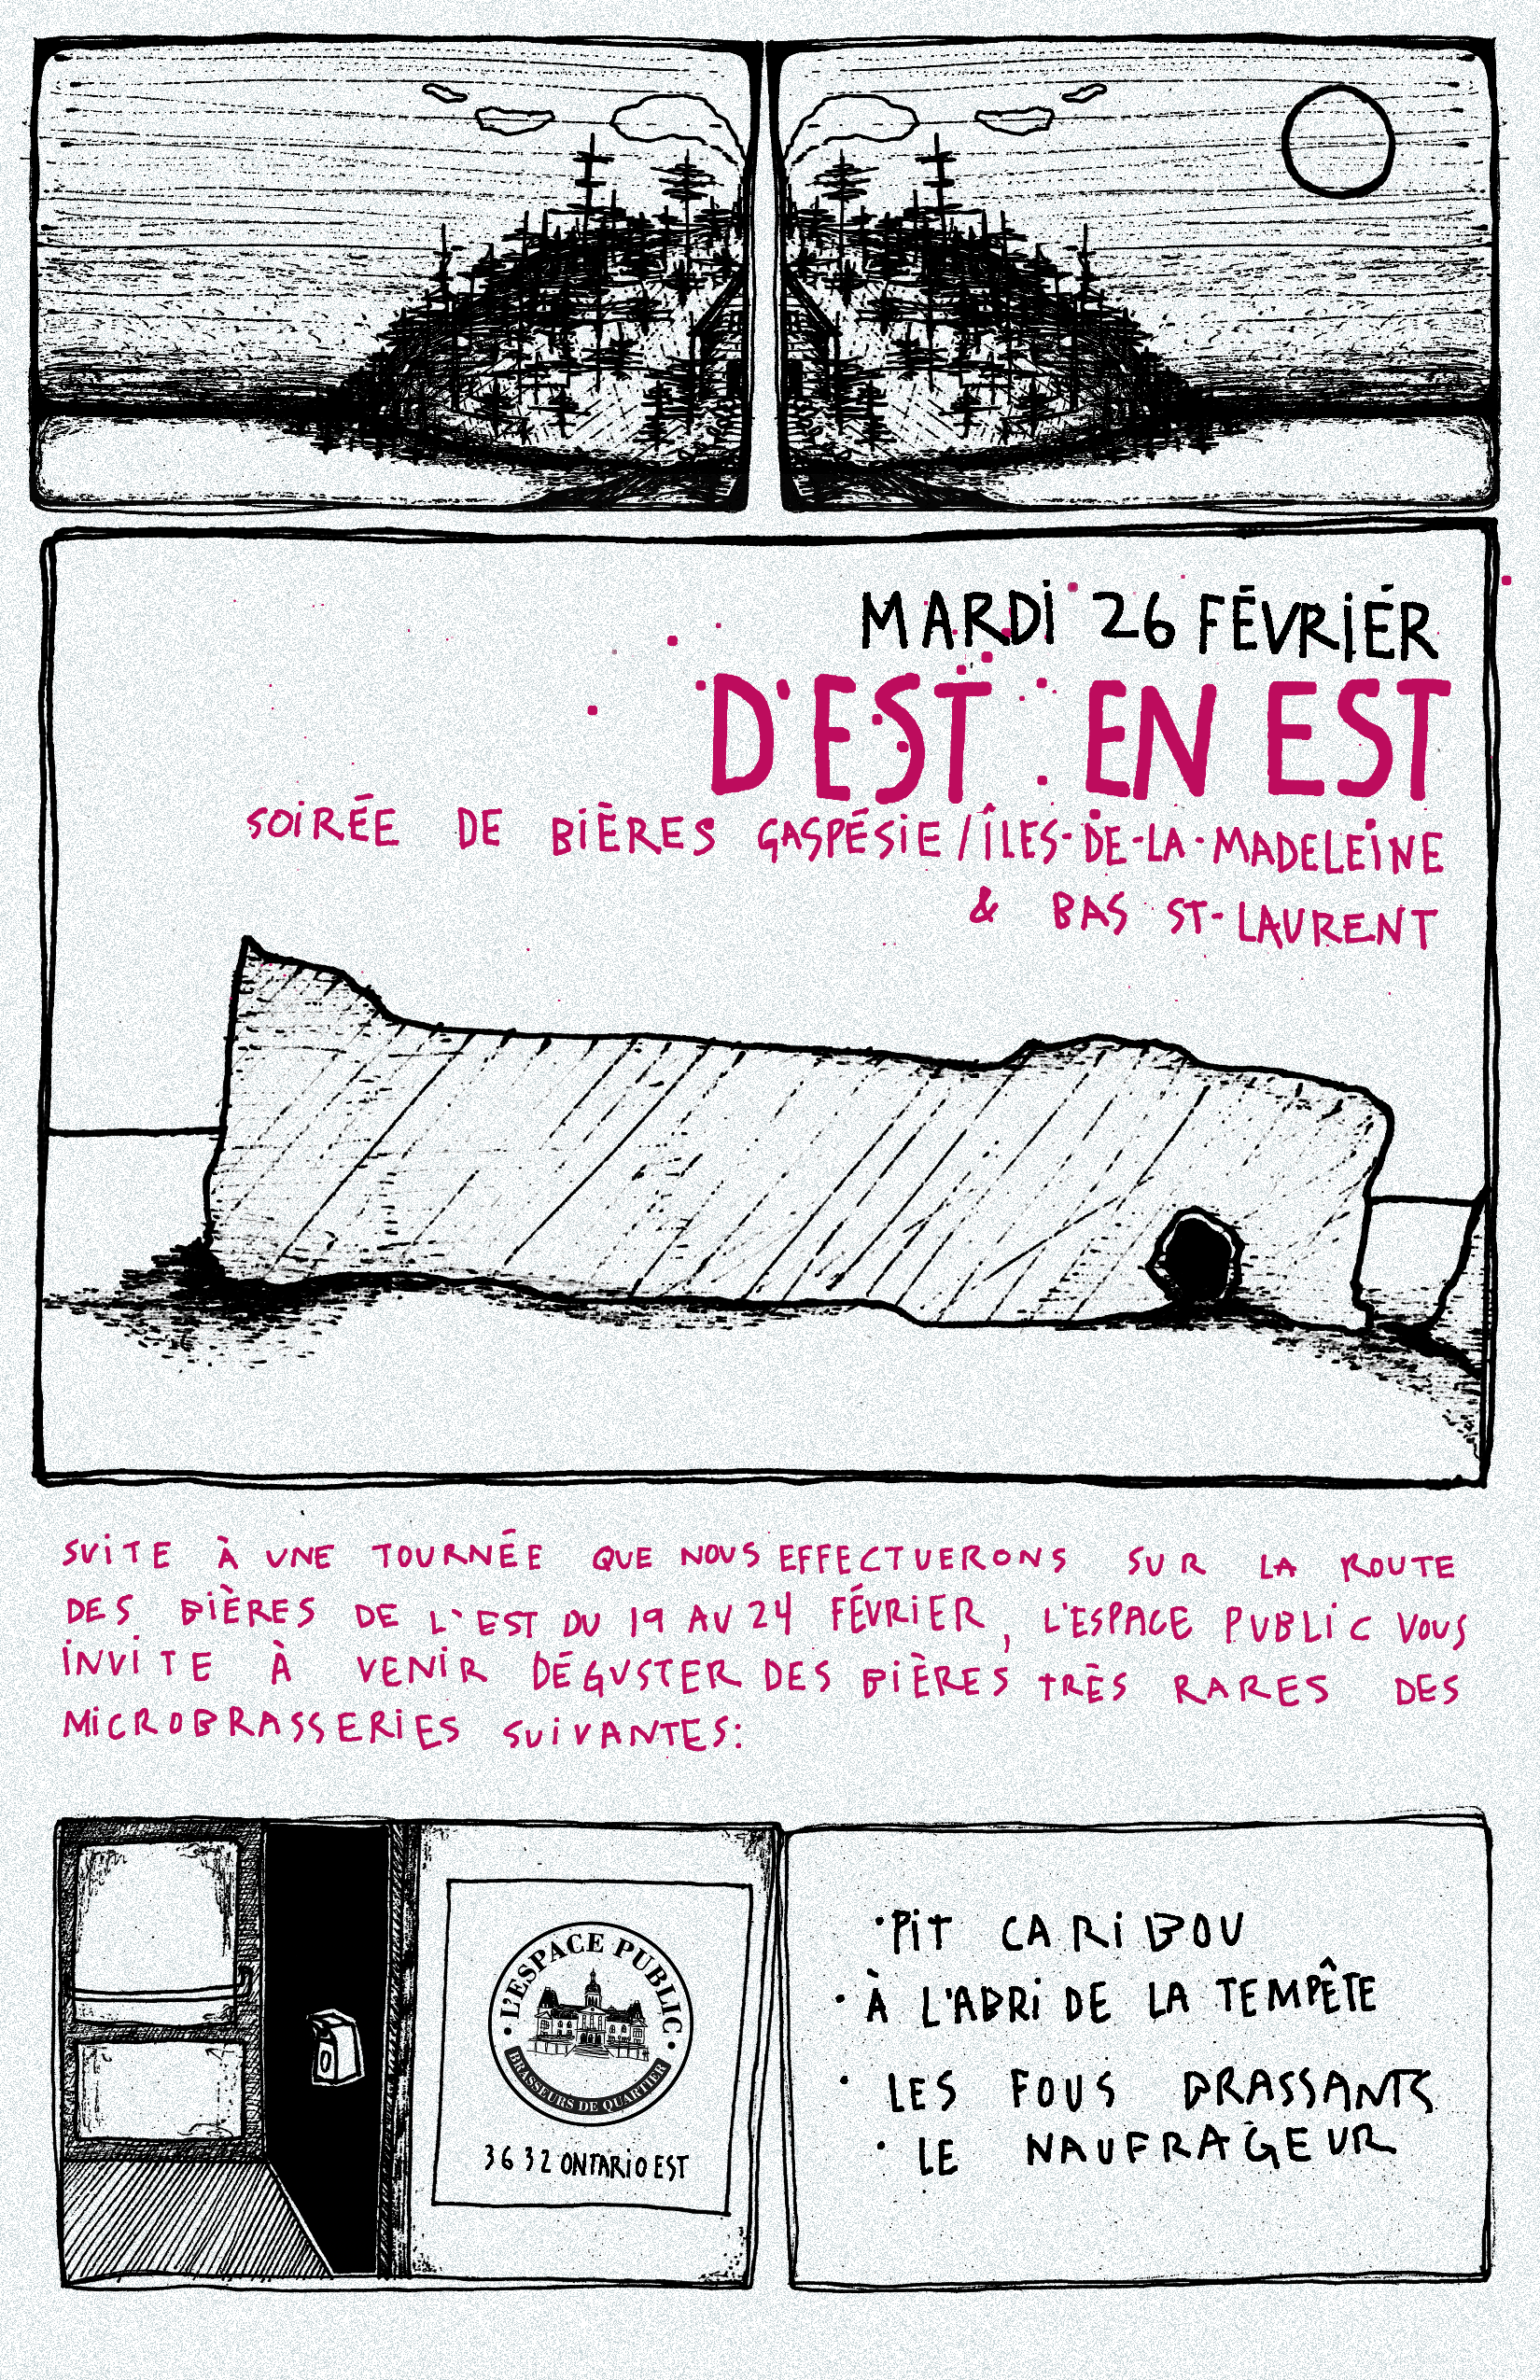 MARDI 26 FÉVRIÉR
D'EST EN EST
SOIRÉE DE BIÈRES GASPÉSIE / ÎLES-DE-LA-MADELEINE
& BAS ST-LAURENT
SUITE À UNE TOURNÉE QUE NOUS EFFECTUERONS SUR LA ROUTE
DES BIÈRES DE L'EST DU 19 AU 24 FÉVRIER, L'ESPACE PUBLIC VOUS
INVITE À VENIR DÉGUSTER DES BIÈRES TRÈS RARES DES
MICROBRASSERIES SUIVANTES:
• L'ESPACE PUBLIC •
BRASSEURS DE QUARTIER
3632 ONTARIO EST
• PIT CARIBOU
• À L'ABRI DE LA TEMPÊTE
• LES FOUS BRASSANTS
• LE NAUFRAGEUR